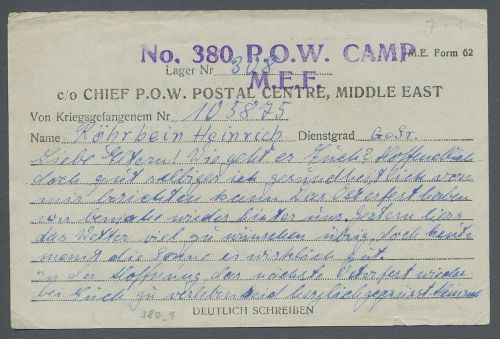 7-1
No. 380. P.O.W. CAMP
M.E. Form 62
Lager Nr 308
M.E.F.
c/o CHIEF P.O.W. POSTAL CENTRE, MIDDLE EAST
Von Kriegsgefangenem Nr 105875
Name Röhrbein Heinrich Dienstgrad Gefr.
Liebe Eltern! Wie geht es Euch? Hoffentlich
doch gut selbiges ich gesundheitlich von
mir berichten kann. Das Osterfest haben
wir beinahe wieder hinter uns. Gestern liess
das Wetter viel zu wünschen übrig, doch heute
meint die Sonne es wirklich gut.
In der Hoffnung das nächste Osterfest wieder
bei Euch zu verleben und herzlich gegrüsst Heinrich
DEUTLICH SCHREIBEN
380_1